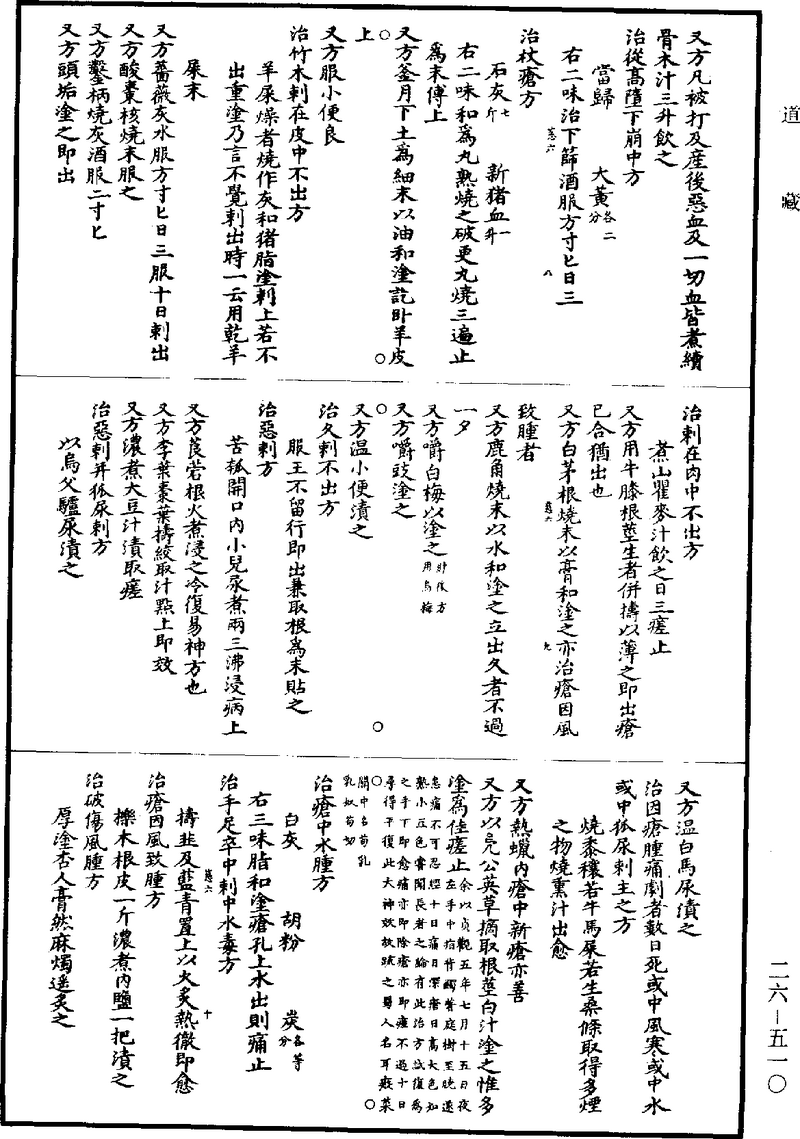 道藏
又方凡被打及産後惡血及一切血皆煮續
骨木汁三升飲之
治從高墮下崩中方
當歸　大黄各二分
右二味治下篩酒服方寸匕日三
卷六　八
治杖瘡方
石灰七斤　新猪血一升
右二味和爲丸熟燒之破更丸燒三遍止
爲末傅上
又方釜月下土爲細末以油和塗訖卧羊皮
上
又方服小便良
治竹木刺在皮中不出方
羊屎燥者燒作灰和猪脂塗刺上若不
出重塗乃言不覺刺出時一云用乾羊
屎末
又方薔薇灰水服方寸匕日三服十日刺出
又方酸棗核燒末服之
又方鑿柄燒灰酒服二寸匕
又方頭垢塗之即出
治刺在肉中不出方
煮山瞿麥汁飲之日三瘥止
又方用牛膝根莖生者併擣以薄之即出瘡
已合猶出也
又方白茅根燒末以膏和塗之亦治瘡因風
卷六　九
致腫者
又方鹿角燒末以水和塗之立出久者不過
一夕
又方嚼白梅以塗之肘後方用烏梅
又方嚼豉塗之
又方温小便漬之
治久刺不出方
服王不留行即出兼取根爲末貼之
治惡刺方
苦瓠開口内小兒尿煮兩三沸浸病上
又方莨菪根火煮浸之冷復易神方也
又方李葉棗葉擣絞取汁點上即效
又方濃煮大豆汁漬取瘥
治惡刺并狐尿刺方
以烏父驢尿漬之
又方温白馬尿漬之
治因瘡腫痛劇者數日死或中風寒或中水
或中狐尿刺主之方
燒黍穰若牛馬屎若生桑條取得多煙
之物燒熏汁出愈
又方熱蠟内瘡中新瘡亦善
又方以鳧公英草摘取根莖白汁塗之惟多
塗爲佳瘥止余以貞觀五年七月十五日夜
左手中指背觸著庭樹至曉遂
患痛不可忍經十日痛日深瘡日高大色如
熟小豆色嘗聞長者之論有此治方試復爲
之手下即愈痛亦即除瘡亦即瘥不過十日
尋得平復此大神效故疏之蜀人名耳瘢菜
關中名苟乳
乳奴苟切
治瘡中水腫方
白灰　胡粉　炭各等分
右三味脂和塗瘡孔上水出則痛止
治手足卒中刺中水毒方
卷六　十
擣韭及藍青置上以火炙熱徹即愈
治瘡因風致腫方
櫟木根皮一斤濃煮内鹽一把漬之
治破傷風腫方
厚塗杏人膏然麻燭遥炙之
二六—五一〇